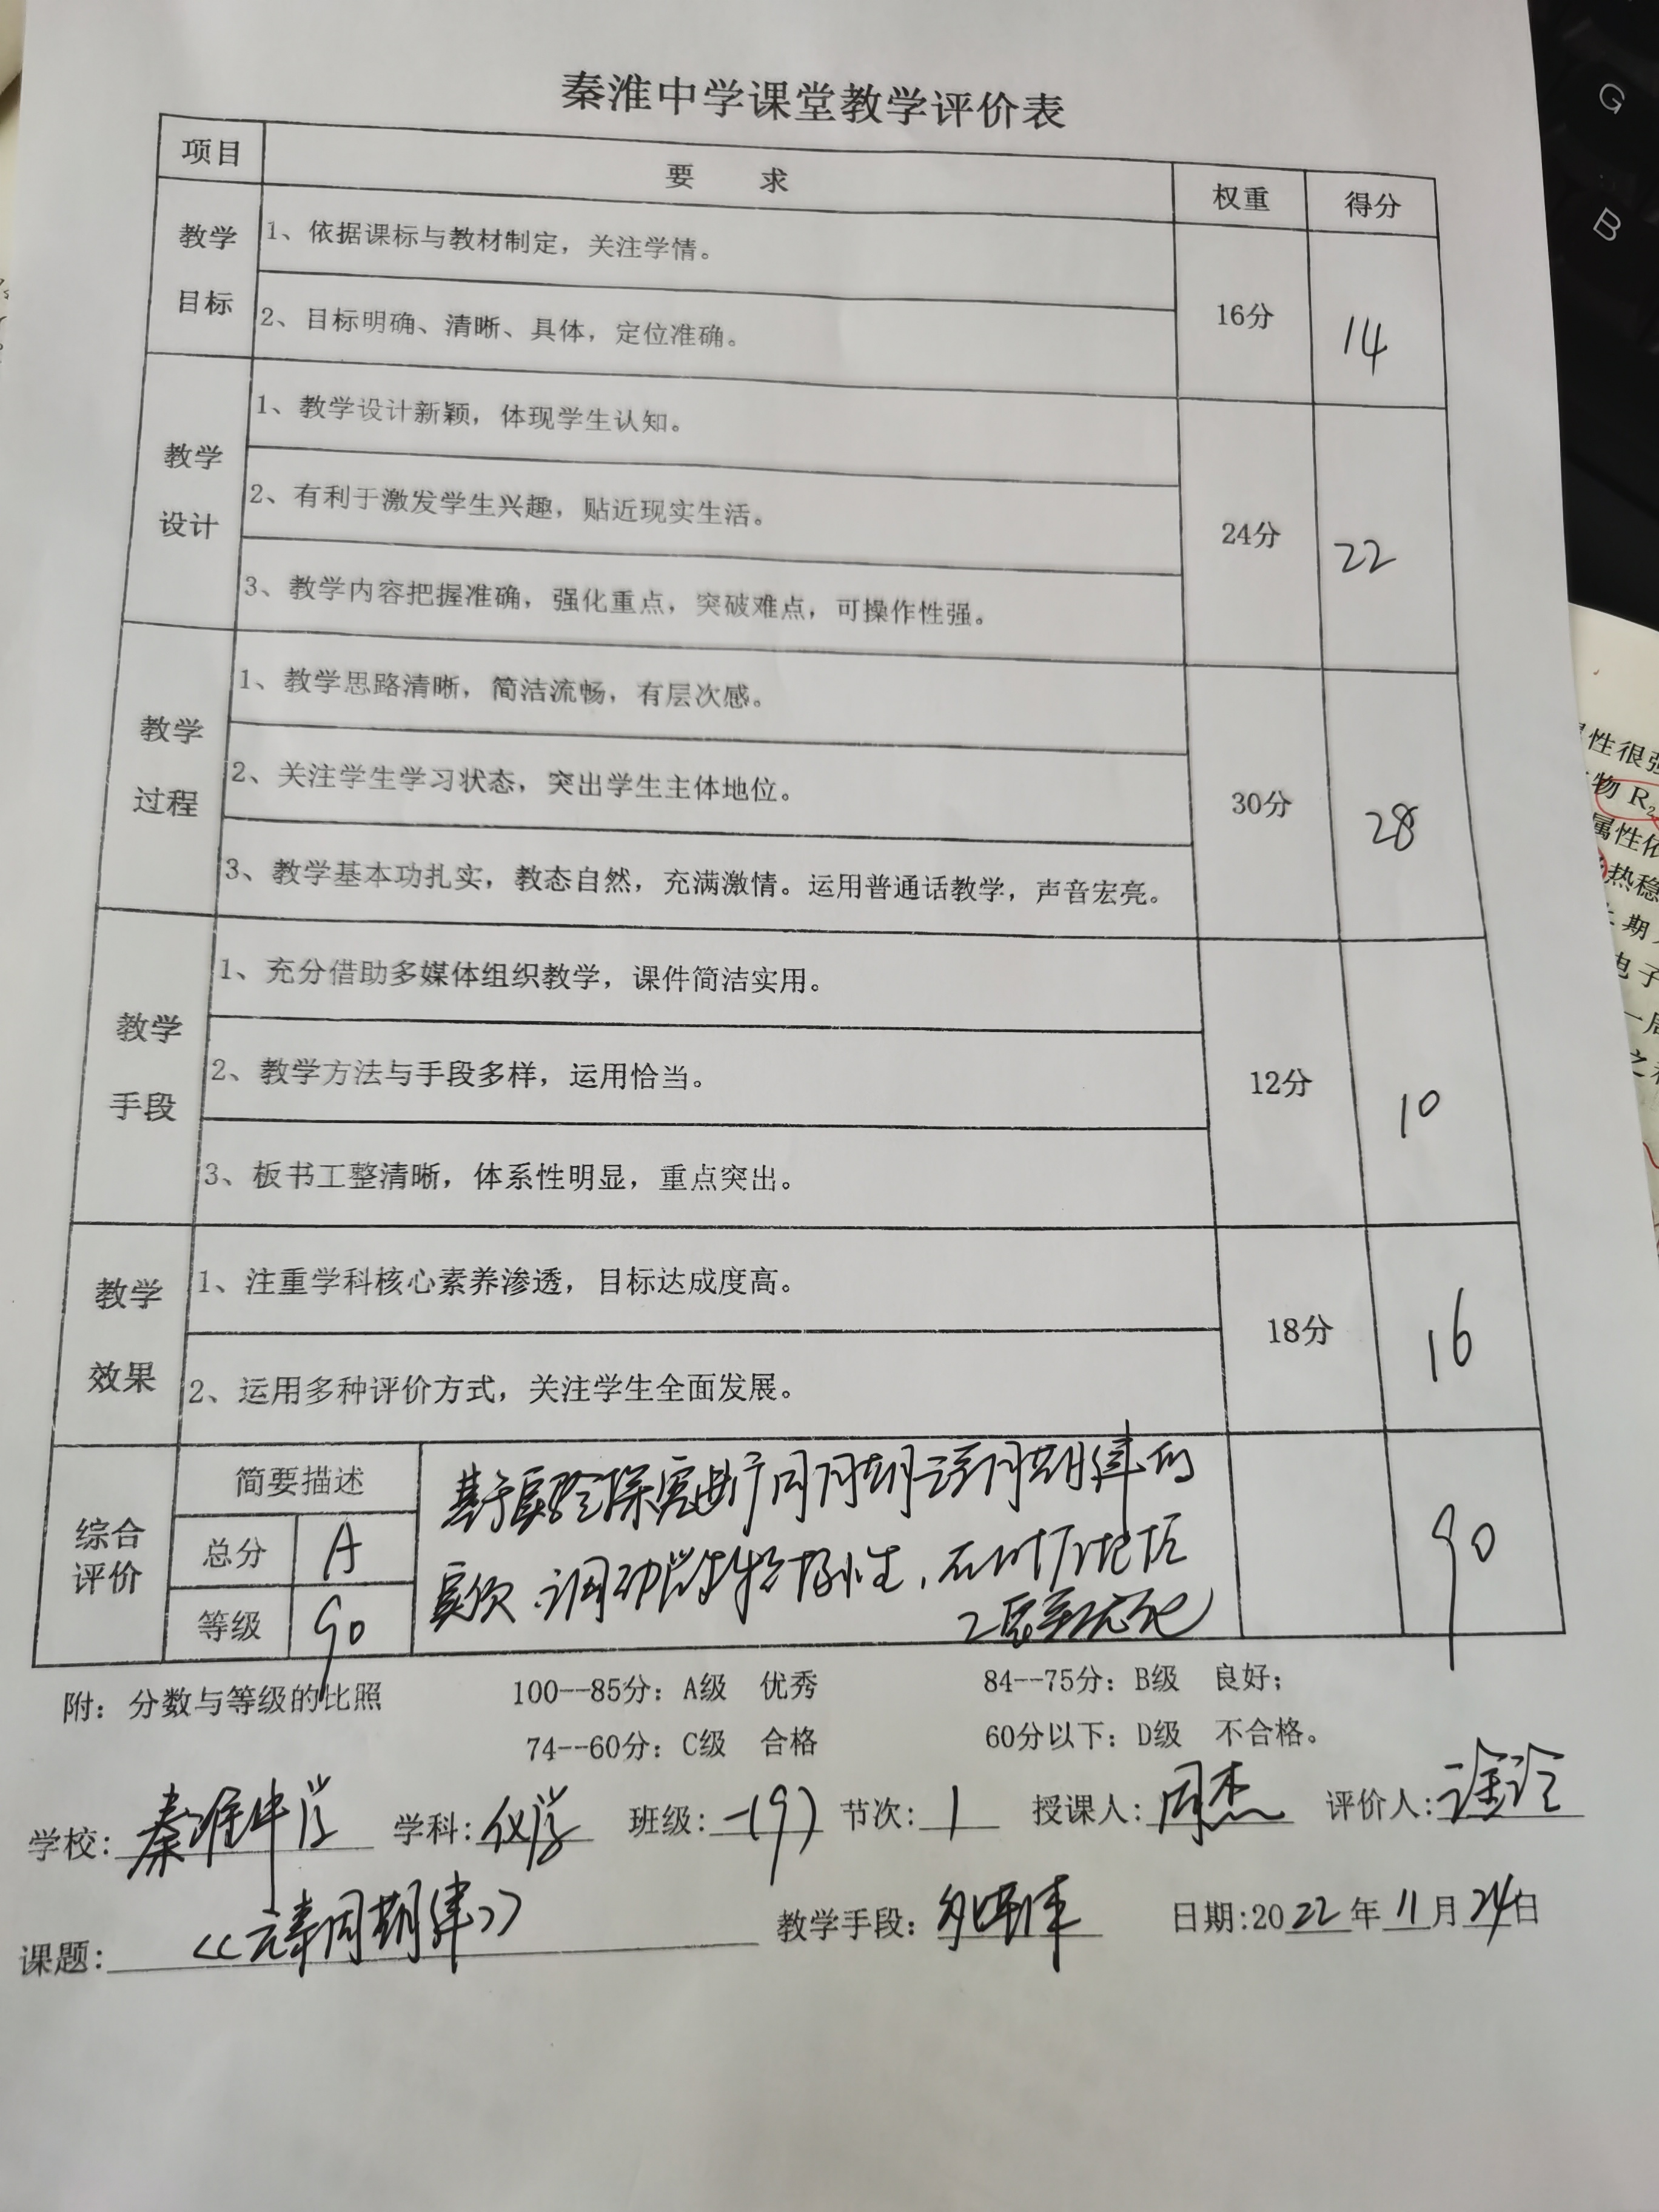 秦淮中学课堂教学评价表
项目 要 求 权重 得分
教学目标 1、依据课标与教材制定，关注学情。 16分 14
2、目标明确、清晰、具体，定位准确。
教学设计 1、教学设计新颖，体现学生认知。 24分 22
2、有利于激发学生兴趣，贴近现实生活。
3、教学内容把握准确，强化重点，突破难点，可操作性强。
教学过程 1、教学思路清晰，简洁流畅，有层次感。 30分 28
2、关注学生学习状态，突出学生主体地位。
3、教学基本功扎实，教态自然，充满激情。运用普通话教学，声音宏亮。
教学手段 1、充分借助多媒体组织教学，课件简洁实用。 12分 10
2、教学方法与手段多样，运用恰当。
3、板书工整清晰，体系性明显，重点突出。
教学效果 1、注重学科核心素养渗透，目标达成度高。 18分 16
2、运用多种评价方式，关注学生全面发展。
综合评价 简要描述 基于实验探究 同周期元素周期律的 90
总分 A 实质、调动学生积极性，
等级 90
附：分数与等级的比照 100--85分：A级 优秀 84--75分：B级 良好；
74--60分：C级 合格 60分以下：D级 不合格。
学校：秦淮中学 学科：化学 班级：一(9) 节次：1 授课人：周杰 评价人：
课题：《元素周期律》 教学手段：多媒体 日期：2022年11月24日
G
B
性很强
物 R₂
属性依
热稳
期
电子
一周
之